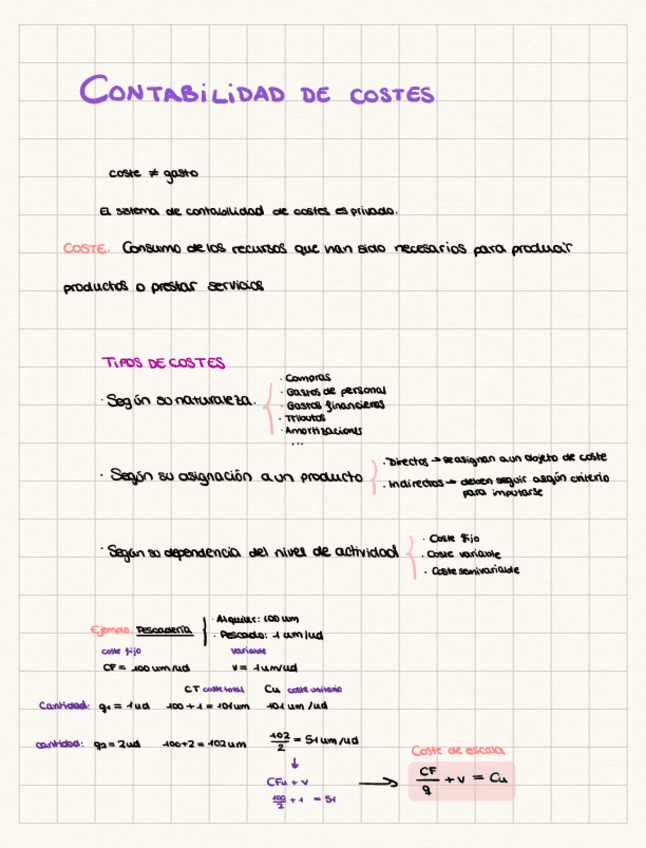 CONTABILIDAD DE COSTES
coste ≠ gasto
El sistema de contabilidad de costes es privado.
COSTE. Consumo de los recursos que han sido necesarios para producir
productos o prestar servicios
TIPOS DE COSTES
· Según su naturaleza.
· Compras
· Gastos de personal
· Gastos financieros
· Tributos
· Amortizaciones
...
· Según su asignación a un producto
· Directos → se asignan a un objeto de coste
· Indirectos → deben seguir algún criterio
para imputarse
· Según su dependencia del nivel de actividad
· Coste fijo
· Coste variable
· Coste semivariable
Ejemplo. Pescadería
· Alquiler: 100 um
· Pescado: 1 um/ud
coste fijo variable
CF = 100 um/ud v = 1um/ud
CT coste total Cu coste unitario
Cantidad: q1 = 1ud 100 + 1 = 101um 101 um /ud
cantidad: q2 = 2ud 100+2 = 102 um 102/2 = 51 um/ud
↓
CFu + v → CF/q + v = Cu
100/2 + 1 = 51
Coste de escala